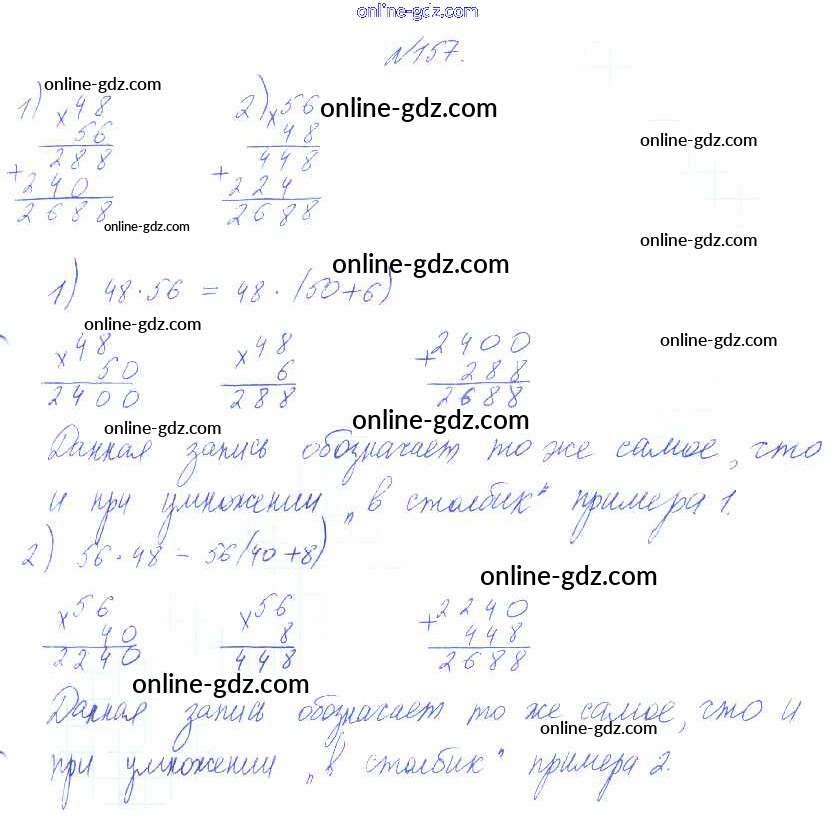 online-gdz.com
№157.
online-gdz.com
1) × 48 2) × 56 online-gdz.com
56 48 online-gdz.com
288 448
+ 240 + 224
2688 2688
online-gdz.com online-gdz.com
online-gdz.com
1) 48·56 = 48·(50+6)
online-gdz.com online-gdz.com
× 48 × 48 + 2400
50 6 288
2400 288 2688
online-gdz.com online-gdz.com
Данная запись обозначает то же самое, что
и при умножении „в столбик" примера 1.
2) 56·48 = 56(40+8)
online-gdz.com
× 56 × 56 + 2240
40 8 448
2240 448 2688
online-gdz.com
Данная запись обозначает то же самое, что и
online-gdz.com
при умножении „в столбик" примера 2.